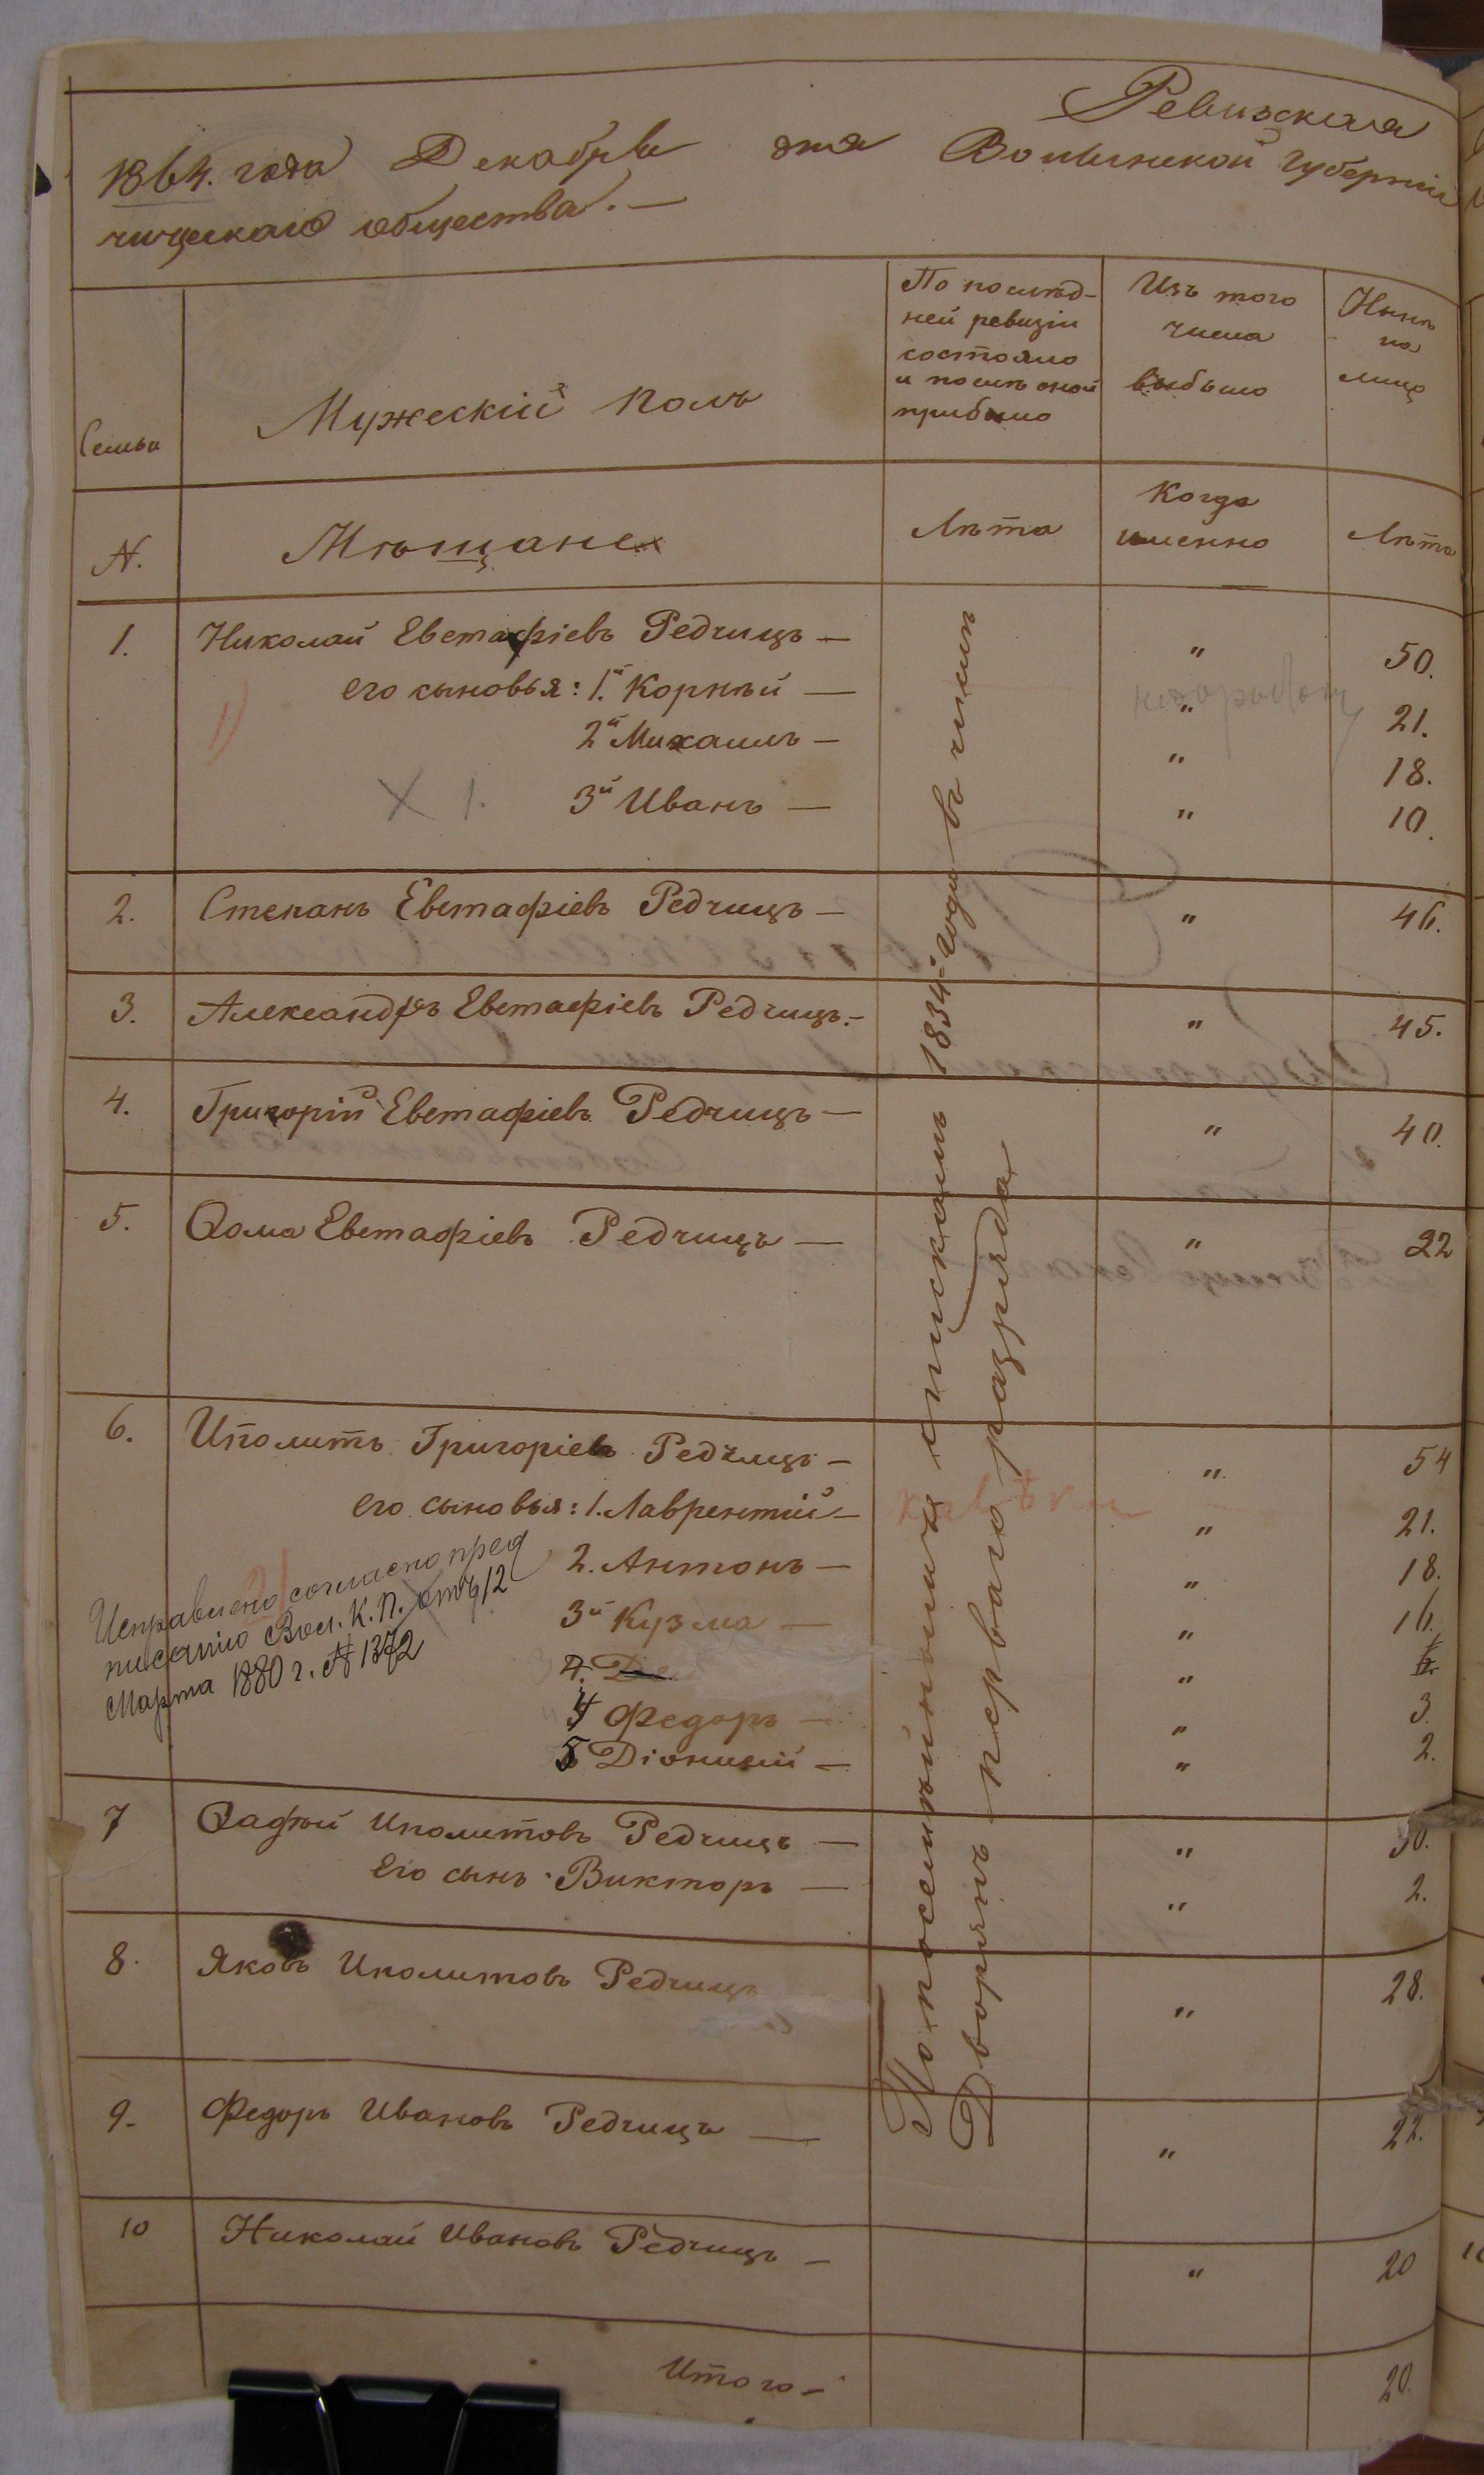 Ревизская
1864. года Декабря дня Волынской губерніи
чицскаго общества. —
Семьи
Мужескій полъ
По послѣд-
ней ревизіи
состояло
и послѣ оной
прибыло
Изъ того
числа
выбыло
Нынѣ
на
лицо
N.
Мѣщане
Лѣта
Когда
именно
Лѣта
1. Николай Евстафіевъ Редчицъ — " 50.
его сыновья: 1.й Корнѣй — " 21.
1)
2й Михаилъ — " 18.
X 1. 3й Иванъ — " 10.
2. Степанъ Евстафіевъ Редчицъ — " 46.
3. Александръ Евстафіевъ Редчицъ. — " 45.
4. Григорій Евстафіевъ Редчицъ — " 40.
5. Ѳома Евстафіевъ Редчицъ — " 22
По посемѣйнымъ спискамъ 1834 года въ числѣ
Дворянъ перваго разряда
6. Иполитъ Григоріевъ Редчицъ — " 54
его сыновья: 1. Лаврентій — " 21.
2. Антонъ — " 18.
3й Кузма — " 16.
4. "
4 Федоръ — " 3.
5 Діонисій — " 2.
Исправлено согласно пред
писанію Вол. К. П. отъ 12
Марта 1880 г. № 1372
7 Ѳадѣй Иполитовъ Редчицъ — " 30.
Его сынъ Викторъ — " 2.
8. Яковъ Иполитовъ Редчицъ " 28.
9. Федоръ Ивановъ Редчицъ — " 22.
10 Николай Ивановъ Редчицъ — " 20
Итого — 20.